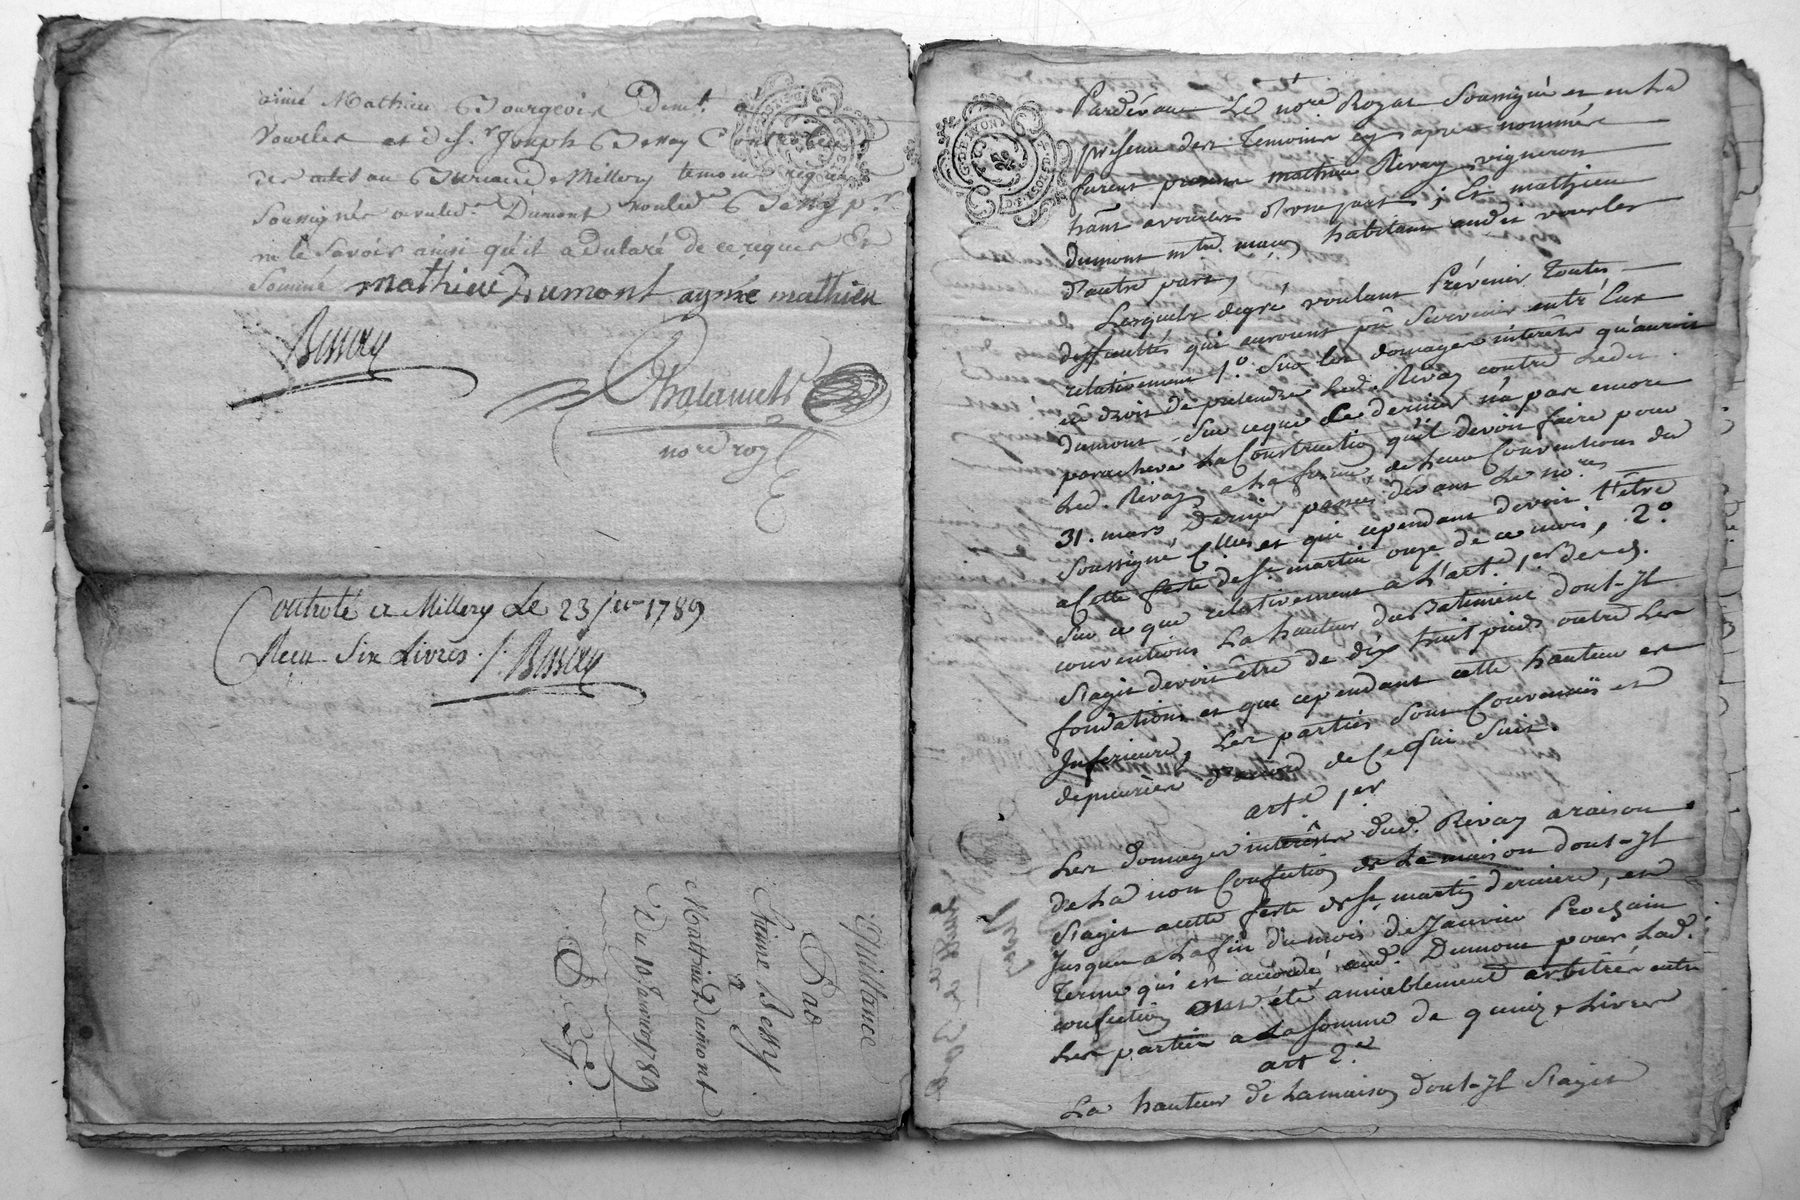 aimé Mathieu Bourgeois demt. a
vourles et de Sr. Joseph Bessay Controlleur
des actes au Bureau de Millery temoins requis
Soussignés avec led. Dumont non led. Bessy pr.
ne le Savoir ainsi qu'il a declaré de ce requis Et
Sommé
mathieu Dumont aymé mathieu
Bissay
nore royl
Controlé a Millery Le 23 jer 1789
Recu Six Livres ./. Bissay
Quittance
Dad
Etienne Bessy
a
Mathieu Dumont
Du 10 Janvier 1789
G. DE LYON
Pardevant Le nore. Royal Soussigné et en La
présence des Temoins cy apres nommés
furent present mathieu Rivay vigneron
hânt a vourles d'une part ; Et mathieu
dumont mtre. maçon habitant audit vourles
d'autre part,
Lesquels degré voulant Prévenir toutes
difficultés qui auroient pû Survenir entr'Eux
relativement 1º. Sur les domages interêts qu'auroit
eu droit de pretendre Led. Rivay contre Ledit
dumont Sur ce que ce dernier n'a pas encore
parachevé La Construction qu'il devoit faire pour
Led. Rivay a La forme de Leurs Conventions du
31. mars dernier passées devant Le nore.
Soussigné Elles et qui cependant devoit L'être
a Cette feste de St. martin onze de ce mois, 2º.
Sur ce que relativement a L'art. 1er des d.
conventions La hauteur du Batiment dont-Il
S'agit devoit être de dix huit pieds outre Les
fondations et que cependant cette hauteur est
Inferieure, Les parties Sont Convenuës et
demeurées d'accord de Ce qui Suit.
arte. 1er
Les domages interêts dud. Rivay a raison
de La non Confection de La maison dont-Il
S'agit a cette feste de St. martin derniere, et
Jusques a La fin du mois de Janvier Prochain
Terme qui est accordé aud. Dumont pour Lad.
confection ont été amiablement arbitrés entre
Les parties a La Somme de quinze Livres
art 2e
La hauteur de La maison dont-Il S'agit